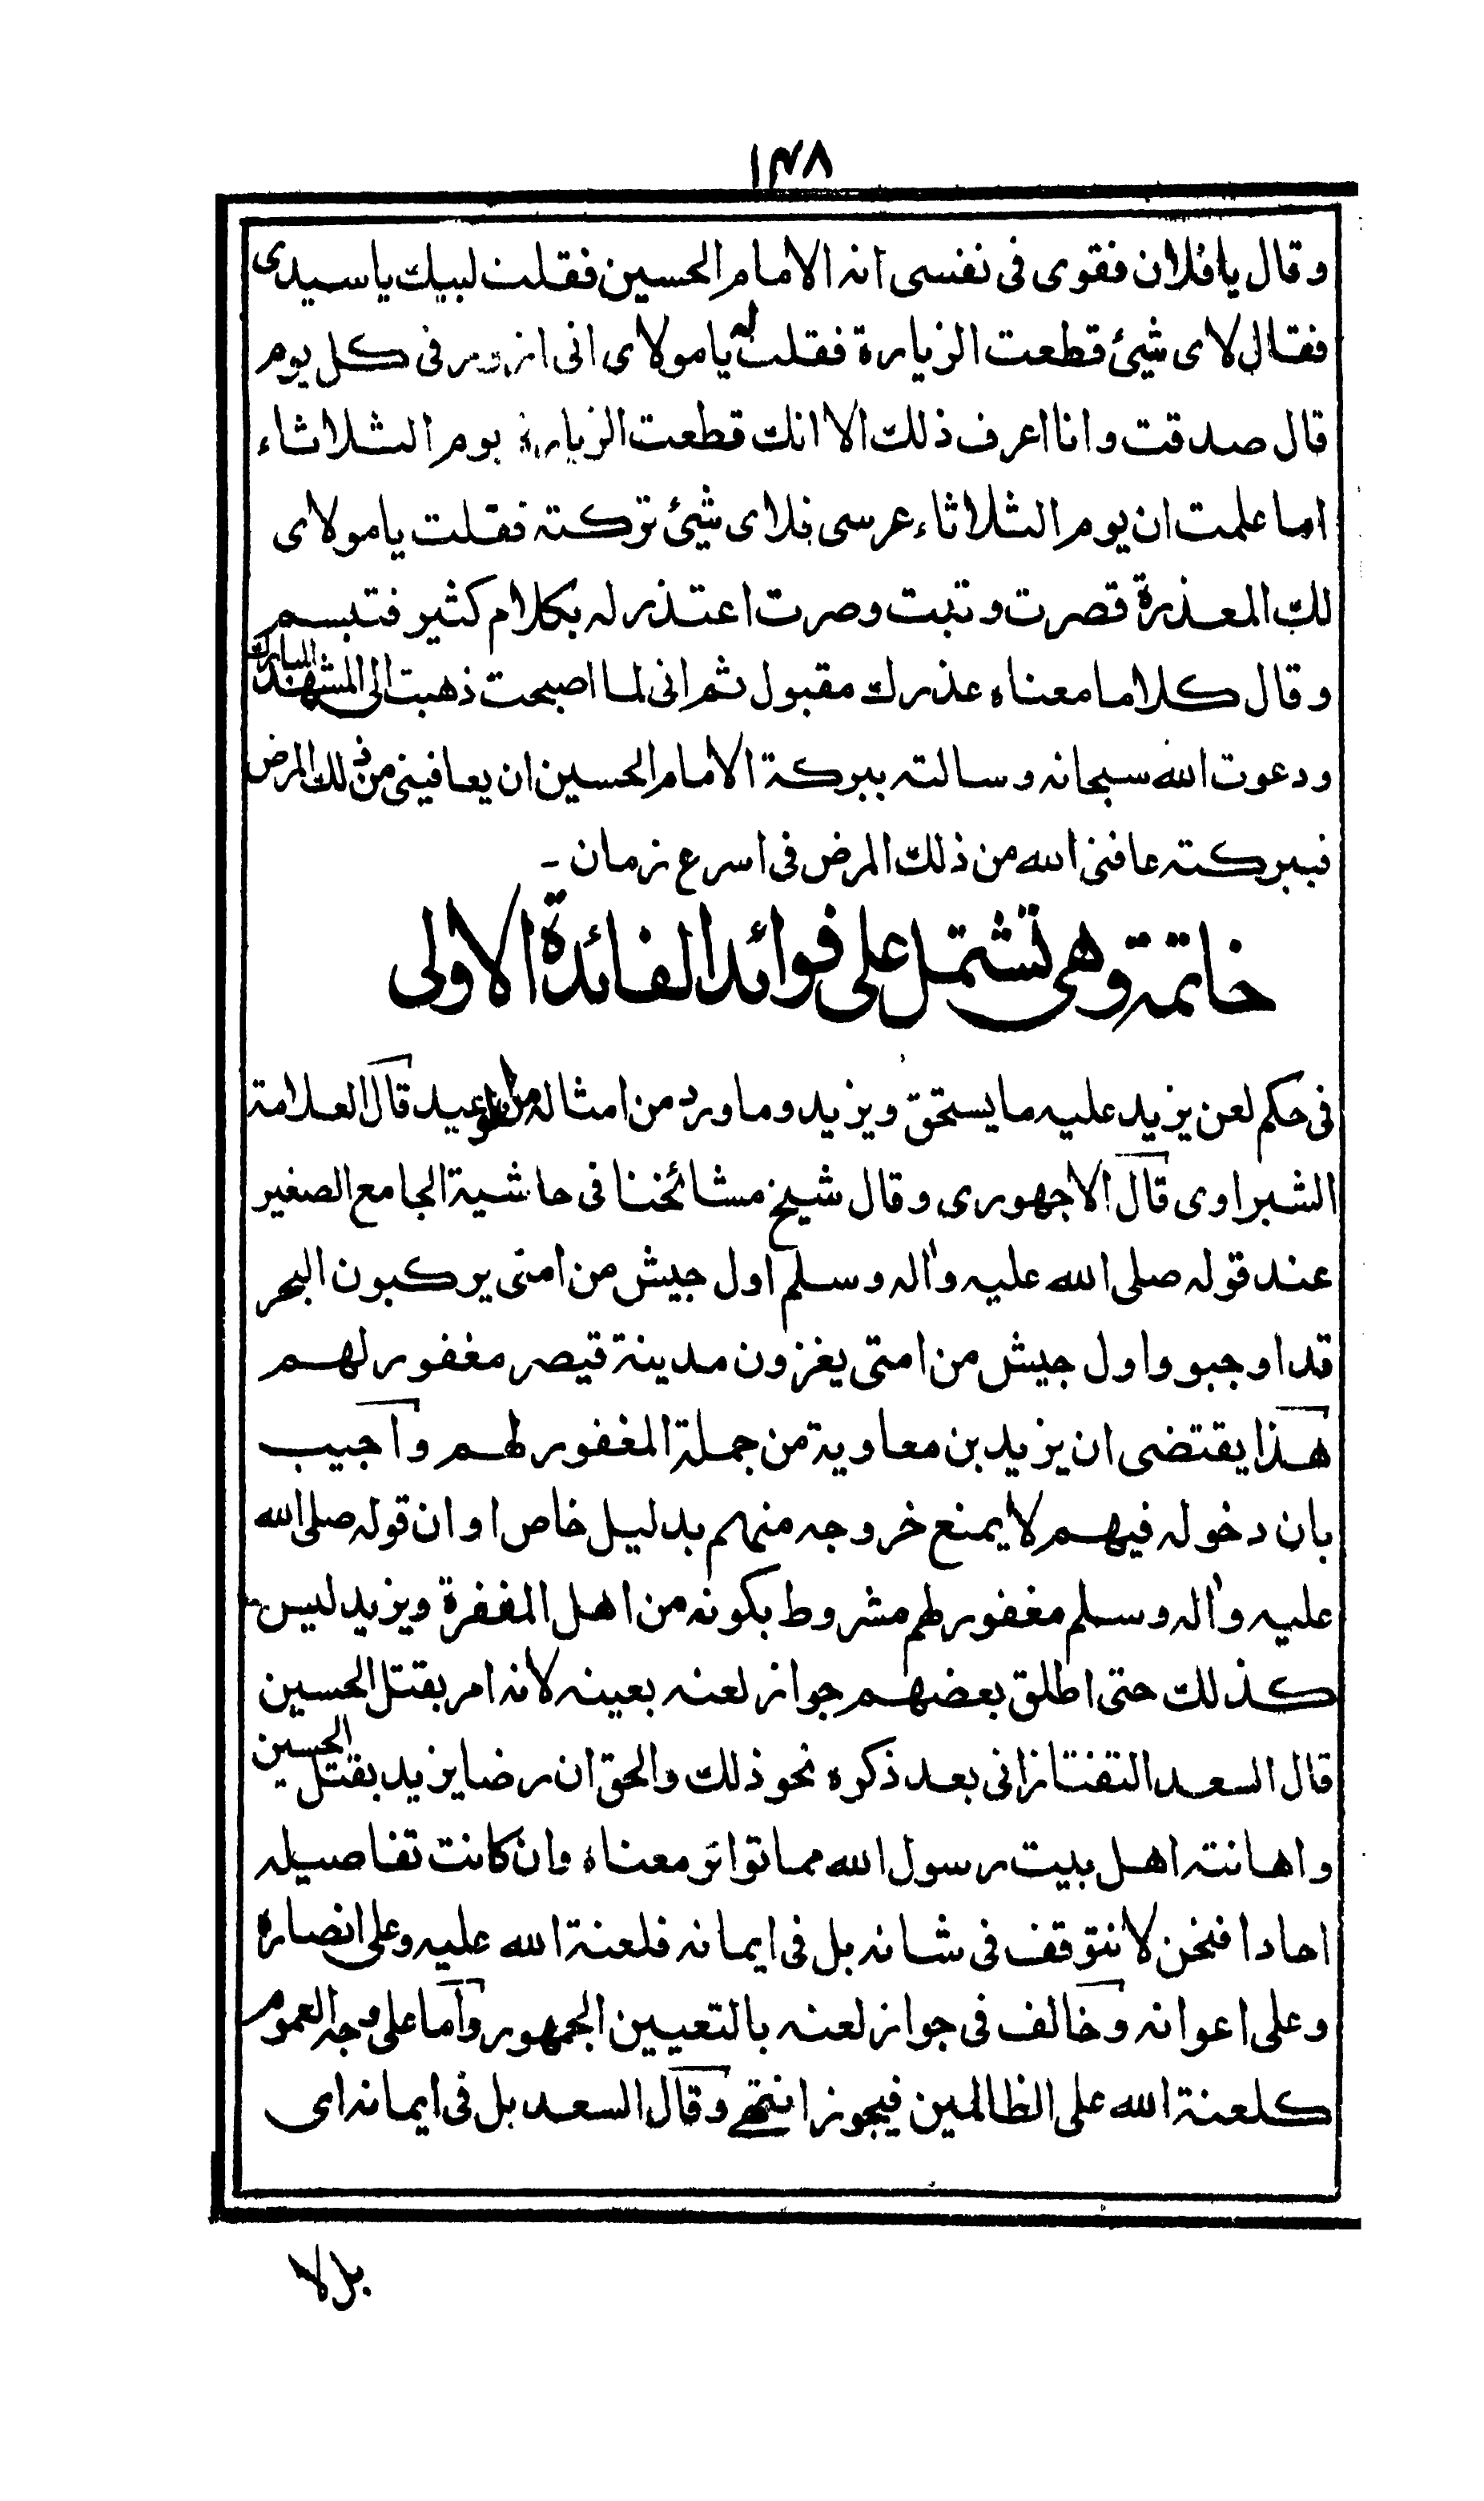 ١٣٨
وقال يا فلان فقوى فى نفسى انه الامام الحسين فقلت لبيك يا سيدى
فقال لاى شيئ قطعت الزيارة فقلت له يا مولاى انى ازور فى كل يوم
قال صدقت وانا اعرف ذلك الا انك قطعت الزيارة يوم الثلاثاء
اما علمت ان يوم الثلاثاء عرسى فلاى شيئ تركته فقلت يا مولاى
لك المعذرة قصرت وتبت وصرت اعتذر له بكلام كثير فتبسم
وقال كلاما معناه عذرك مقبول ثم انى لما اصبحت ذهبت الى المشهد المبارك
ودعوت الله سبحانه وسالته ببركة الامام الحسين ان يعافينى من ذلك المرض
فببركته عافنى الله من ذلك المرض فى اسرع زمان -
خاتمة وهى تشتمل على فوائد الفائدة الاولى
فى حكم لعن يزيد عليه ما يستحق ويزيد وما ورد من امثاله من الوعيد قال العلامة
الشبراوى قال الاجهورى وقال شيخ مشائخنا فى حاشية الجامع الصغير
عند قوله صلى الله عليه واله وسلم اول جيش من امتى يركبون البحر
قد اوجبو واول جيش من امتى يغزون مدينة قيصر مغفور لهم
هذا يقتضى ان يزيد بن معاوية من جملة المغفور لهم واجيب
بان دخوله فيهم لا يمنع خروجه منهم بدليل خاص او ان قوله صلى الله
عليه واله وسلم مغفور لهم مشروط بكونه من اهل المغفرة ويزيد ليس
كذلك حتى اطلق بعضهم جواز لعنه بعينه لانه امر بقتل الحسين
قال السعد التفتازانى بعد ذكره نحو ذلك والحق ان رضا يزيد بقتل الحسين
واهانته اهل بيت رسول الله مما تواتر معناه وان كانت تفاصيله
احادا فنحن لا نتوقف فى شانه بل فى ايمانه فلعنة الله عليه وعلى انصاره
وعلى اعوانه وخالف فى جواز لعنه بالتعيين الجمهور واما على وجه العموم
كلعنة الله على الظالمين فيجوز انتهى وقال السعد بل فى ايمانه اى
بل لا